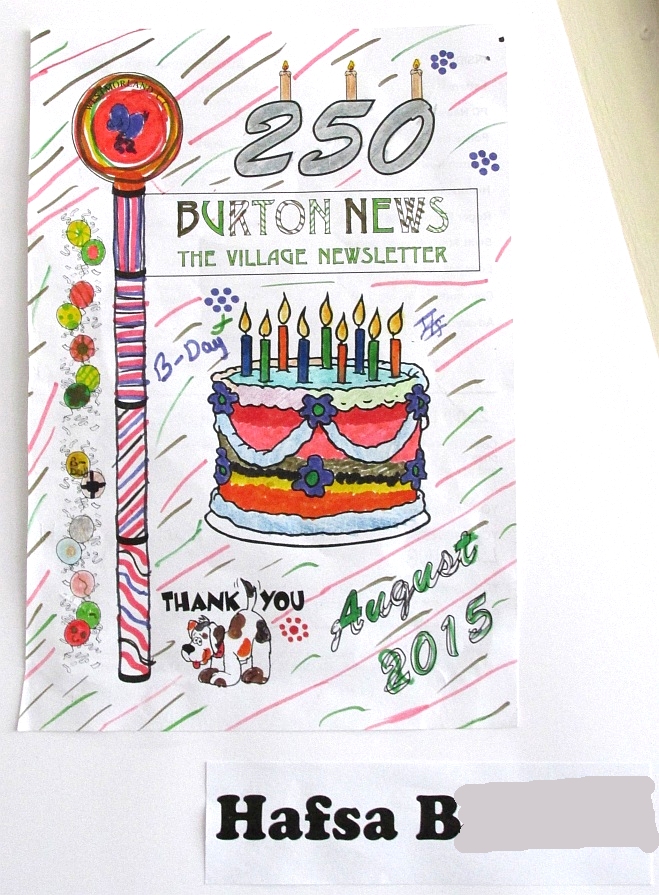 WESTMORLAND
250
BURTON NEWS
THE VILLAGE NEWSLETTER
B-Day
THANK YOU
August
2015
Hafsa B